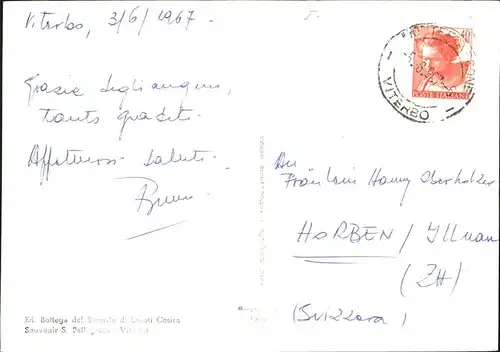 Viterbo, 3/6/1967.
Grazie degli auguri,
tanto graditi.
Affettuosi saluti.
Bruno
Ed. Bottega del Ricordo di Lucati Cosira
Souvenir S. Pellegrino - Viterbo
40
POSTE ITALIANE
VITERBO
An
Fräulein Hanny Oberholzer
HORBEN / Illnau
(ZH)
(Svizzera)